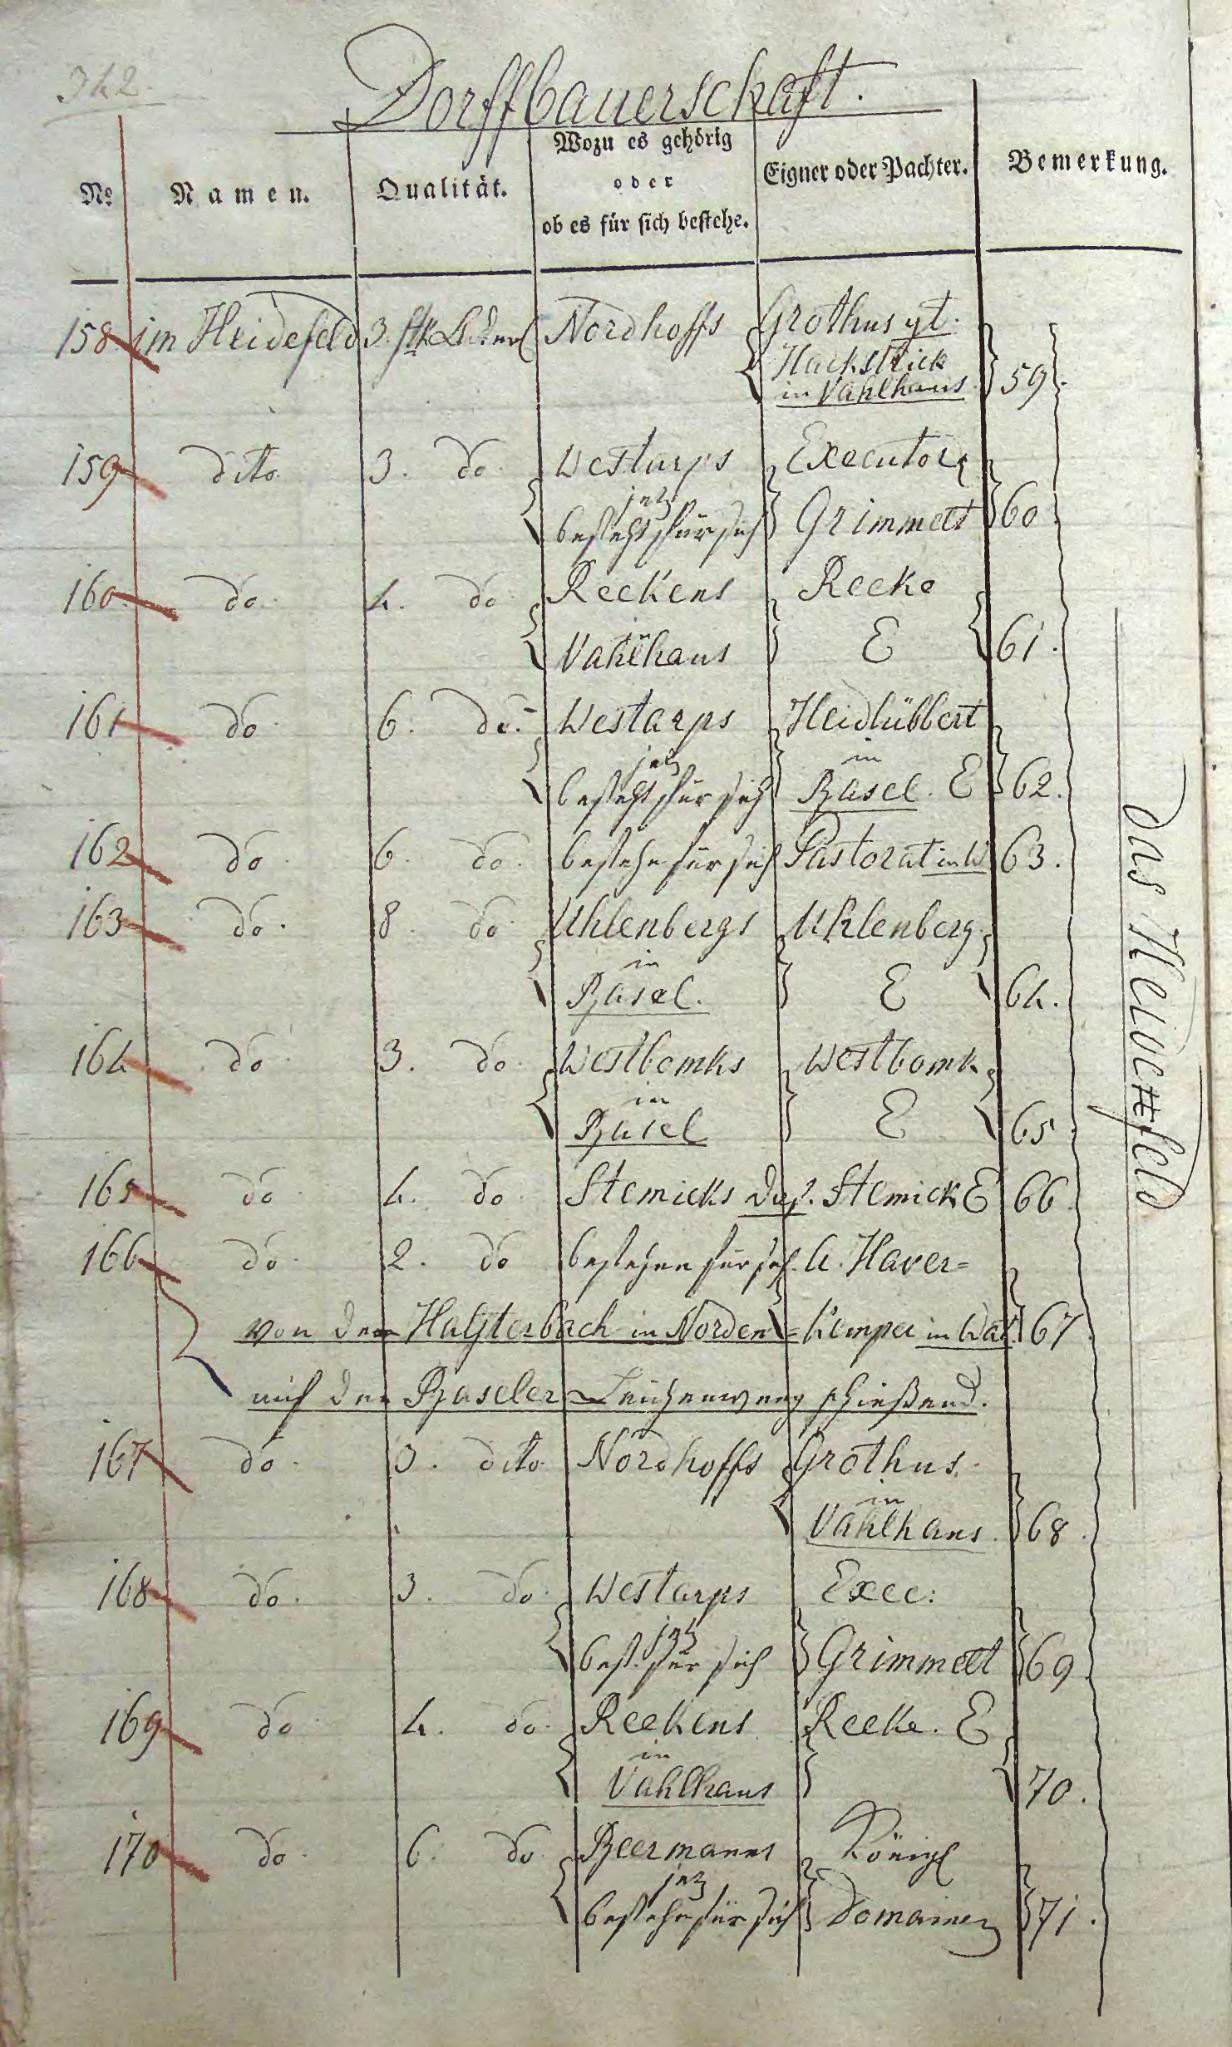 342.
Dorffbauerschaft.
No Namen. Qualität. Wozu es gehörig oder ob es für sich bestehe. Eigner oder Pachter. Bemerkung.
158 im Heidefeld 3. Nordhoffs Grothus gt.
Hackstrick
in Vahlhaus 59.
159 dito 3. do Westarps Executor
jetz
besteht für sich Grimmelt 60
160. do. 4. do Reckens Recke
Vahlhaus E 61.
161 do 6. do. Westarps Heidlübbert
jetz in
besteht für sich Basel. E 62.
162 do. 6. do. bestehe für sich Pastorat in W 63.
163 do. 8. do Uhlenbergs Uhlenberg.
in
Basel. E 64.
164 do 3. do Westbomks Westbomk
in
Basel E 65
165 do 4. do Stemicks das. Stemick E 66
166 do. 2. do bestehen für sich. Haver=
von der Halsterbach in Norden =kemper in Wat. 67
auf den Baseler Leichenweg schießend.
167 do. 3. dito Nordhoffs Grothus.
in
Vahlhaus. 68
168 do. 3. do. Westarps Exec:
jetz
best. für sich Grimmelt 69
169 do 4. do. Reckens Recke. E
in
Vahlhaus 70.
170 do 6. do Beermanns Königl
jetz
bestehe für sich Domainen 71.
das Heidefeld